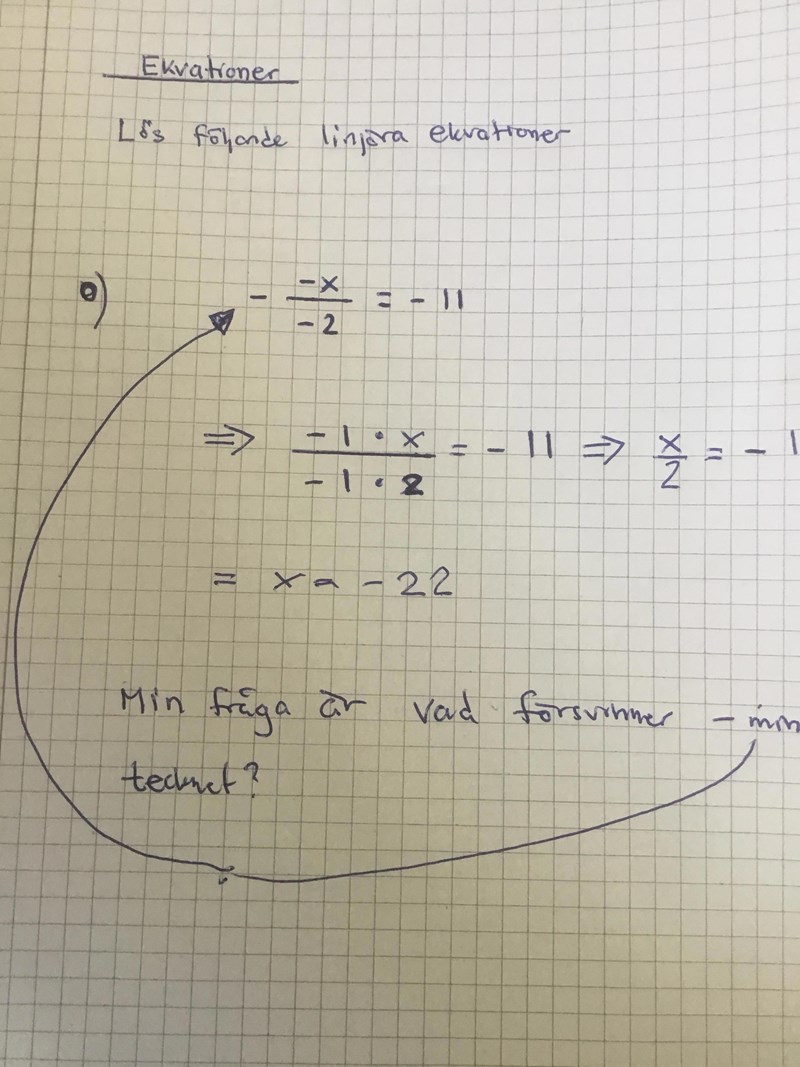 Ekvationer
Lös följande linjära ekvationer
e) - -x/-2 = -11
⇒ -1·x/-1·2 = -11 ⇒ x/2 = -1
= x = -22
Min fråga är vad försvinner - min
tecknet?